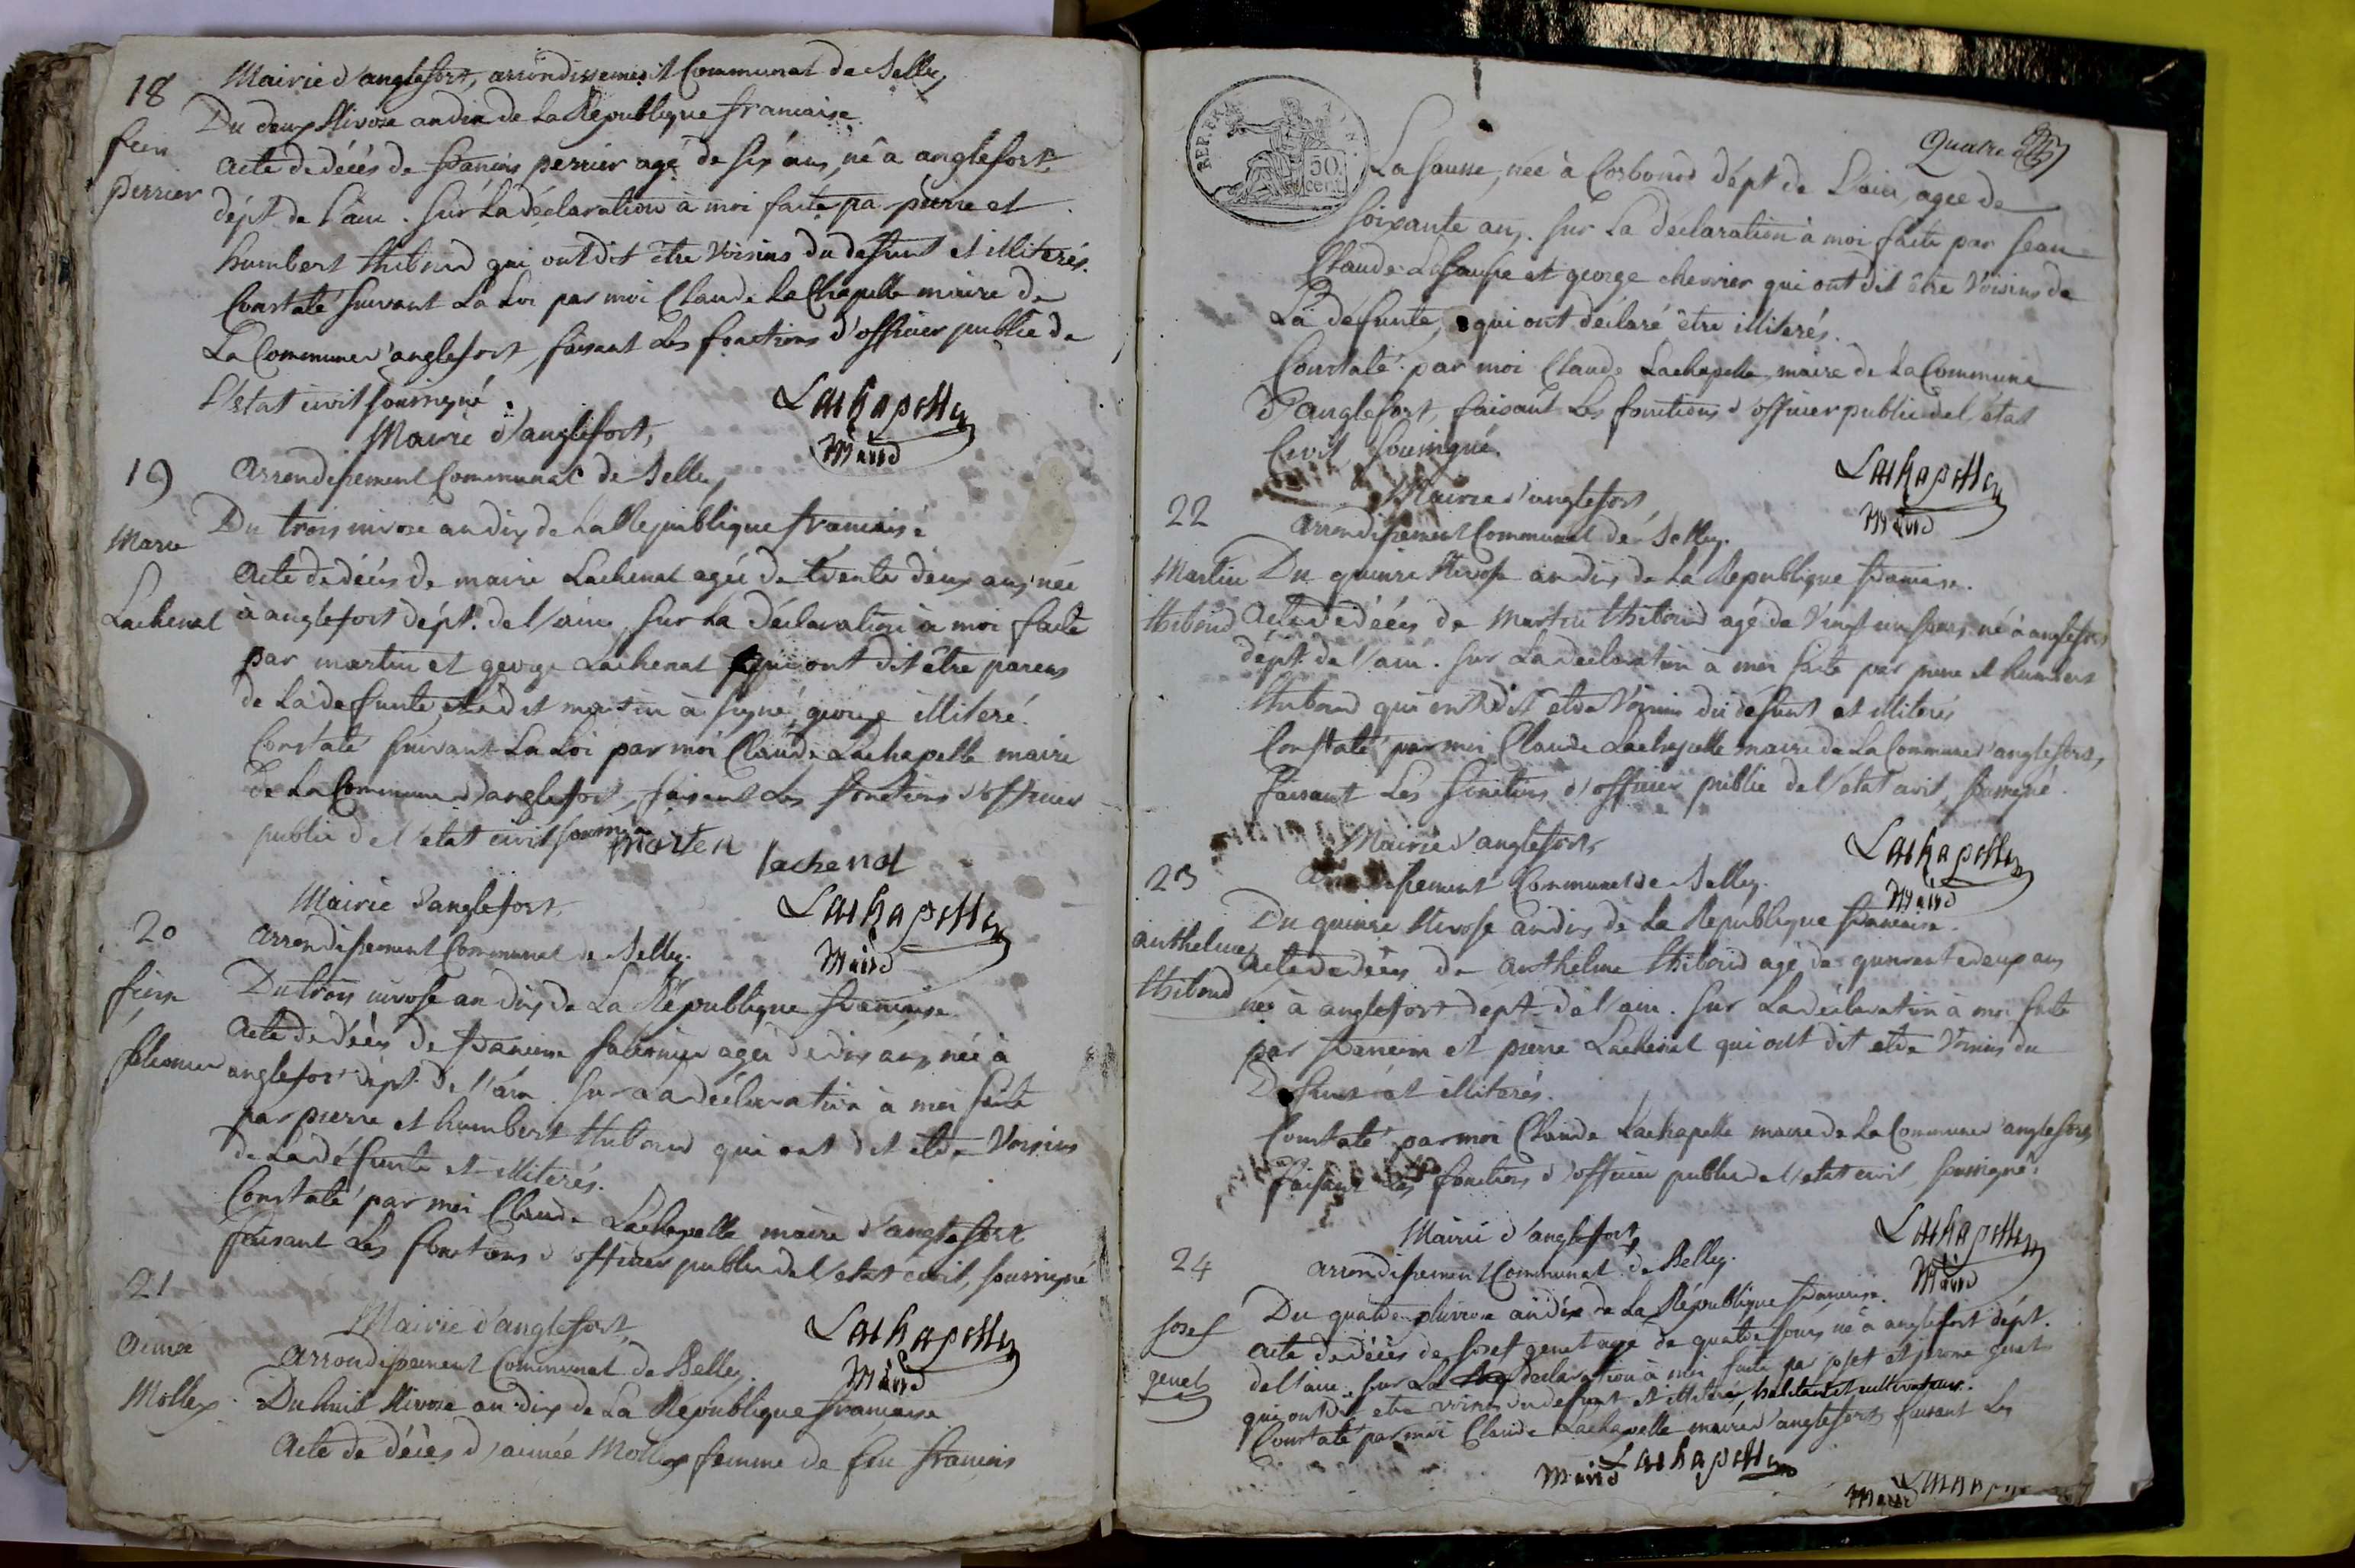 18
Mairie d'anglefort, arrondissement Communal de Belley,
Du deux Nivose an dix de La Republique francaise
fcein
perrier
acte de décès de francois perrier agé de six ans, né a anglefort,
dépt de l'ain. sur La déclaration à moi faite par pierre et
humbert thiboud qui ont dit être voisins du defunt et illiterés.
Constaté suivant La Loi par moi Claude La Chapelle maire de
La Commune d'anglefort, faisant Les fonctions d'officier public de
L'état civil soussigné.
Lachapelle
Maire
Mairie d'anglefort,
19
arrondissement Communal de Belley,
Du trois nivose an dix de La Republique francaise
Marie
Lachenal
acte de décès de marie Lachenal agée de trente deux ans, née
à anglefort dépt. de l'ain, sur La déclaration à moi faite
par martin et george Lachenal qui ont dit être parens
de La defunte, le dit martin à signé, george illiteré.
Constaté suivant La Loi par moi Claude Lachapelle maire
de La Commune d'anglefort, faisant Les fonctions d'officier
public de l'état civil soussigné
marten lachenal
Mairie d'anglefort,
Lachapelle
Maire
20
arrondissement Communal de Belley.
Du trois nivose an dix de La République francaise
acte de décès de francoise agée de dix ans, née à
anglefort dépt. de l'ain. sur La déclaration à moi faite
par pierre et humbert thiboud qui ont dit etre voisins
de La défunte et illiterés.
Constaté par moi Claude Lachapelle maire d'anglefort
faisant Les fonctions d'officier public de l'etat civil, soussigné
21
Mairie d'anglefort,
Lachapelle
Maire
aimée
Mollex
arrondissement Communal de Belley.
Du huit Nivose an dix de La République francaise
acte de décès d'aimée Mollex femme de feu francois
REP. FRA
50
cent
Quatre
La sausse, née à Corbonod dépt de L'ain, agée de
soixante ans. sur La déclaration à moi faite par jean
Claude Lasausse et george chevrier qui ont dit être voisins de
La défunte, qui ont déclaré être illiterés.
Constaté par moi Claude Lachapelle, maire de La Commune
d'anglefort, faisant Les fonctions d'officier public de l'état
Civil, soussigné.
Lachapelle
Maire
22
Mairie d'anglefort,
arrondissement Communal de Belley.
Martin
thiboud
Du quinze Nivose an dix de La Republique francaise.
acte de décès de Martin thiboud agé de vingt un jours, né à anglefort
dépt. de l'ain. sur La declaration à moi faite par pierre et humbert
thiboud qui ont dit etre voisins du défunt et illiterés
Constaté par moi Claude Lachapelle maire de La Commune d'anglefort,
faisant Les fonctions d'officier public de l'état civil, soussigné.
Mairie d'anglefort,
Lachapelle
Maire
23
arrondissement Communal de Belley.
Du quinze Nivose an dix de La République francaise.
anthelme
thiboud
acte de décès de anthelme thiboud agé de quarante deux ans
né à anglefort dépt. de l'ain. sur La déclaration à moi faite
par francois et pierre Lachenal qui ont dit etre voisins du
Defunt et illiterés.
Constaté par moi Claude Lachapelle maire de La Commune d'anglefort
faisant Les fonctions d'officier public de l'etat civil, soussigné.
Mairie d'anglefort,
Lachapelle
Maire
24
arrondissement Communal de Belley.
Du quatre pluviose an dix de La République francaise.
josef
genet
acte de décès de josef genet agé de quatre jours, né à anglefort dépt.
de l'ain. sur La déclaration à moi faite par josef et genet
qui ont dit etre voisins du defunt et illiterés, habitans et cultivateurs.
Constaté par moi Claude Lachapelle maire d'anglefort, faisant Les
Maire Lachapelle
Maire Lachapelle